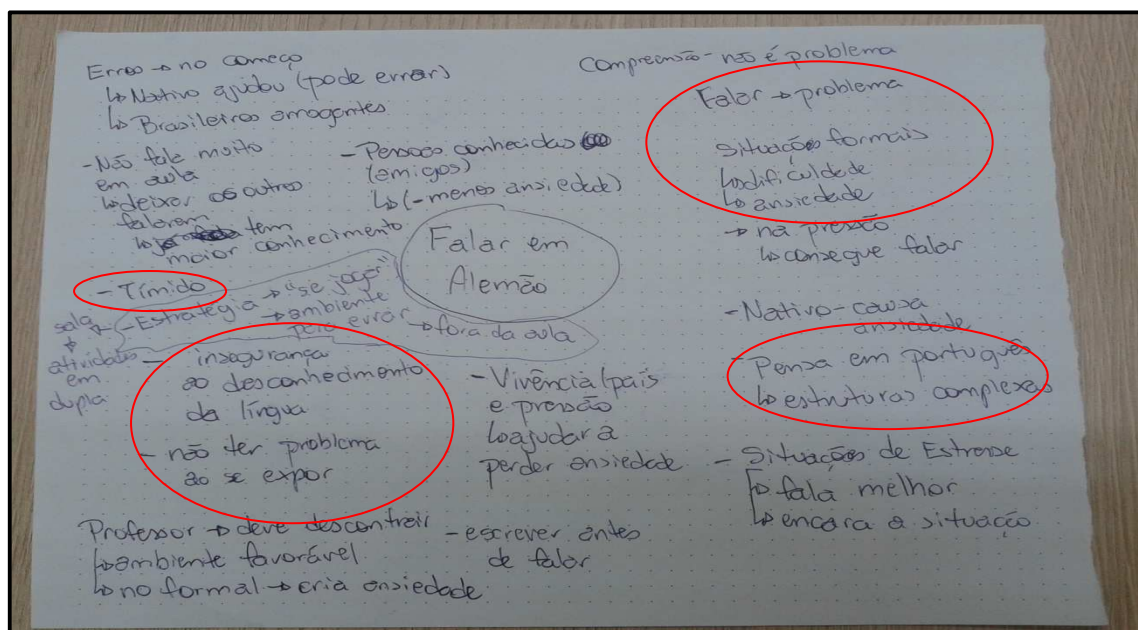 Erros → no começo
↳ Nativo ajudou (pode errar)
↳ Brasileiros arrogantes
- Não fala muito
em aula
↳ deixar os outros
falarem
↳ tem
maior conhecimento
- Tímido
- Pessoas conhecidas
(amigos)
↳ (- menos ansiedade)
Falar em
Alemão
- Estratégia → "se jogar"
→ ambiente
para errar → fora da aula
sala
atividades
em
dupla
- insegurança
ao desconhecimento
da língua
- não ter problema
ao se expor
- Vivência (país
e pressão
↳ ajudar a
perder ansiedade
Professor → deve descontrair
↳ ambiente favorável
↳ no formal → cria ansiedade
- escrever antes
de falar
Compreensão - não é problema
Falar → problema
Situações formais
↳ dificuldade
↳ ansiedade
→ na pressão
↳ consegue falar
- Nativo - causa
ansiedade
- Pensa em português
↳ estruturas complexas
- Situações de Estresse
↳ fala melhor
↳ encara a situação